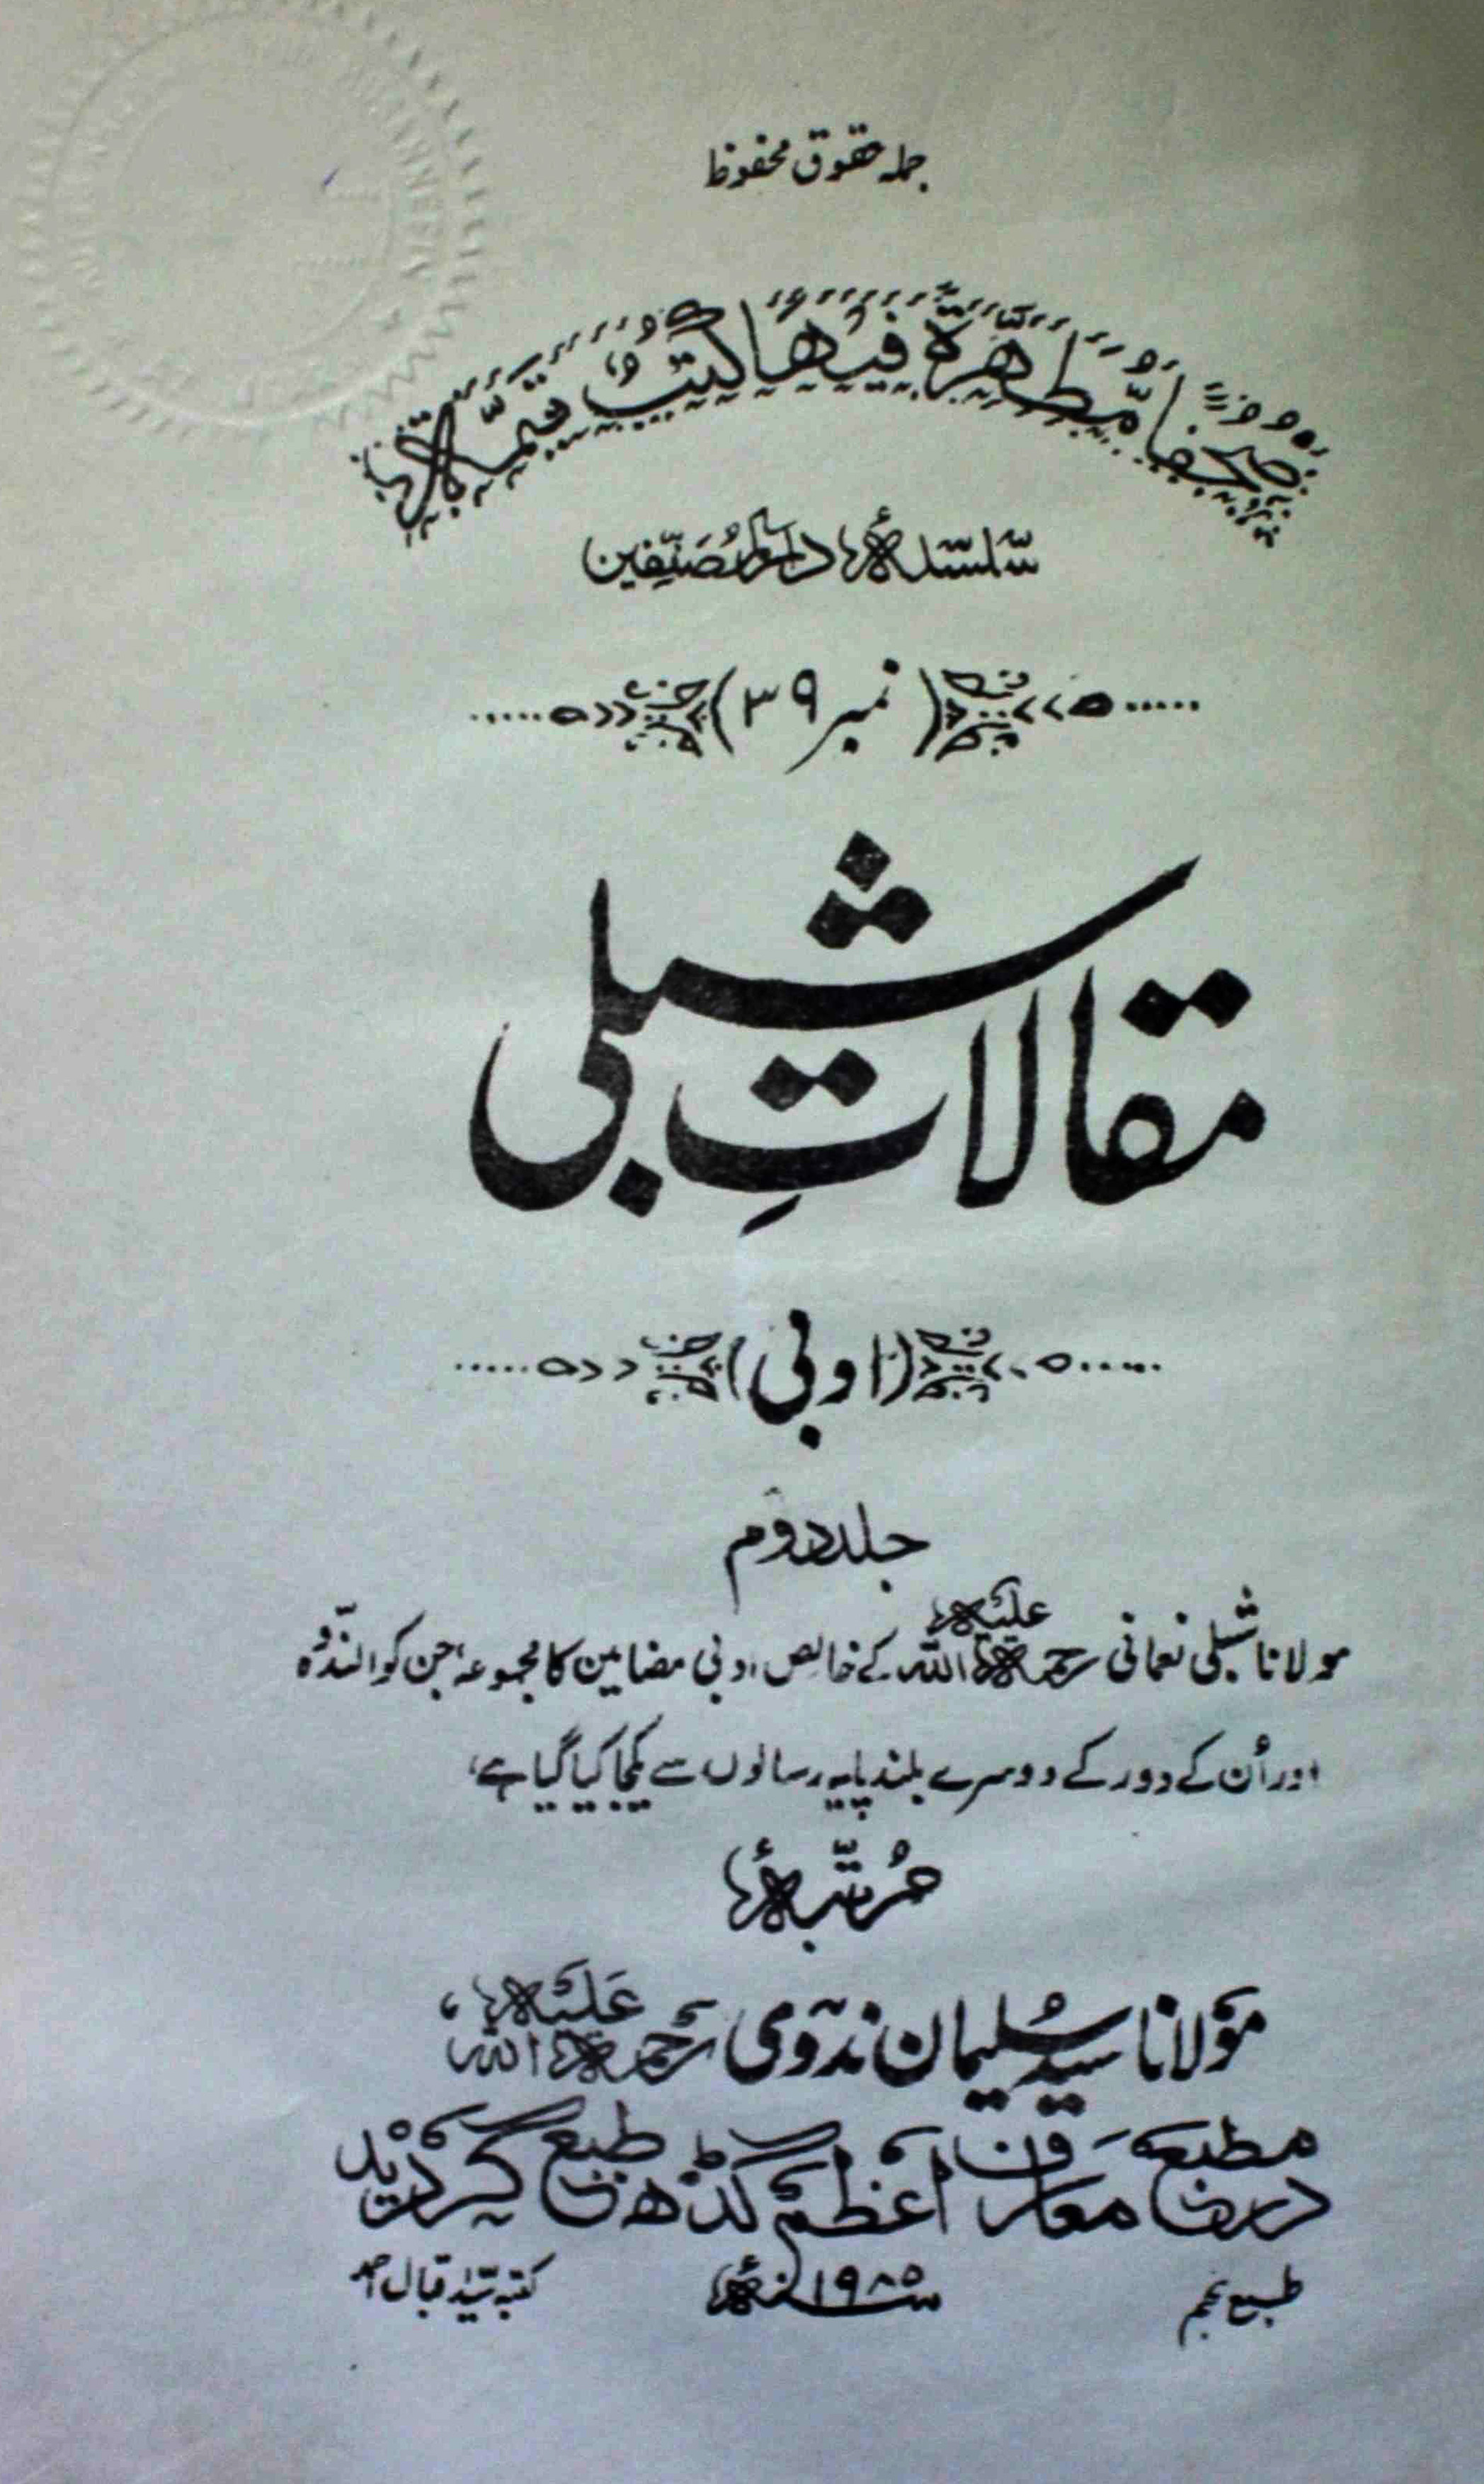 جملہ حقوق محفوظ
صُحُفًا مُّطَهَّرَةً فِيْهَا كُتُبٌ قَيِّمَةٌ
سلسلۂ دارالمصنفین
(نمبر ۳۹)
مقالاتِ شبلی
(ادبی)
جلد دوم
مولانا شبلی نعمانی رحمۃ اللہ علیہ کے خالص ادبی مضامین کا مجموعہ، جن کو الندوہ
اور اُن کے دور کے دوسرے بلند پایہ رسالوں سے یکجا کیا گیا ہے،
مُرتّبۂ
مولانا سید سلیمان ندوی رحمۃ اللہ علیہ،
در مطبع معارف اعظم گڈھ طبع گردید
طبع پنجم
۱۹۸۵ء
کتبہ سید اقبال احمد